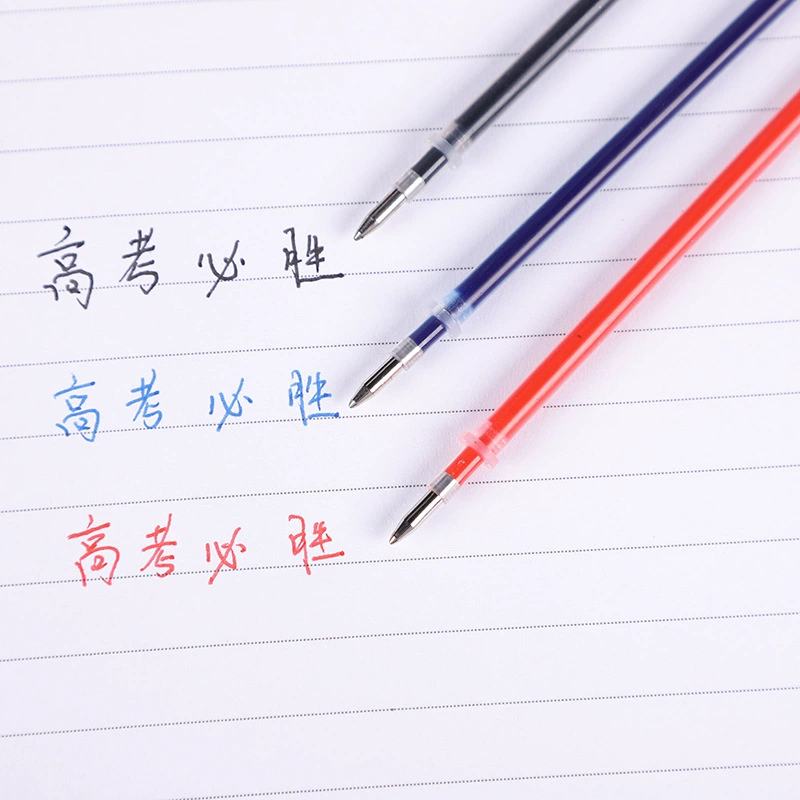 高考必胜
高考必胜
高考必胜